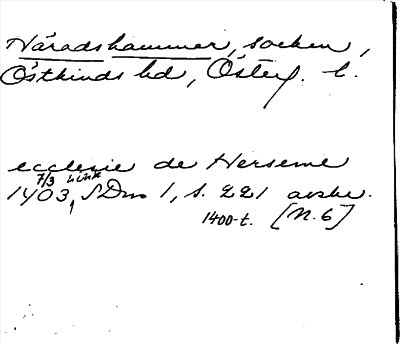 Häradshammer, socken,
Östkinds hd, Österg. l.
ecclesie de Herseme
7/3
1403, SDns 1, s. 221 avskr.
1400-t. [N. 6]